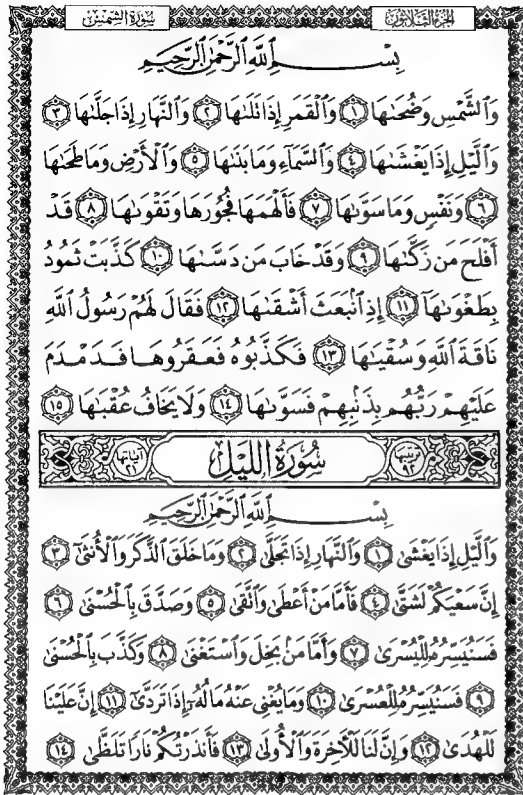 سورة الشمس
الجزء الثلاثون
بِسْمِ اللَّهِ الرَّحْمَٰنِ الرَّحِيمِ
وَالشَّمْسِ وَضُحَىٰهَا ١ وَالْقَمَرِ إِذَا تَلَىٰهَا ٢ وَالنَّهَارِ إِذَا جَلَّىٰهَا ٣
وَالَّيْلِ إِذَا يَغْشَىٰهَا ٤ وَالسَّمَاءِ وَمَا بَنَىٰهَا ٥ وَالْأَرْضِ وَمَا طَحَىٰهَا
٦ وَنَفْسٍ وَمَا سَوَّىٰهَا ٧ فَأَلْهَمَهَا فُجُورَهَا وَتَقْوَىٰهَا ٨ قَدْ
أَفْلَحَ مَن زَكَّىٰهَا ٩ وَقَدْ خَابَ مَن دَسَّىٰهَا ١٠ كَذَّبَتْ ثَمُودُ
بِطَغْوَىٰهَا ١١ إِذِ انۢبَعَثَ أَشْقَىٰهَا ١٢ فَقَالَ لَهُمْ رَسُولُ اللَّهِ
نَاقَةَ اللَّهِ وَسُقْيَٰهَا ١٣ فَكَذَّبُوهُ فَعَقَرُوهَا فَدَمْدَمَ
عَلَيْهِمْ رَبُّهُم بِذَنۢبِهِمْ فَسَوَّىٰهَا ١٤ وَلَا يَخَافُ عُقْبَٰهَا ١٥
ترتيبها ٩٢ سُورَةُ اللَّيْلِ آياتها ٢١
بِسْمِ اللَّهِ الرَّحْمَٰنِ الرَّحِيمِ
وَالَّيْلِ إِذَا يَغْشَىٰ ١ وَالنَّهَارِ إِذَا تَجَلَّىٰ ٢ وَمَا خَلَقَ الذَّكَرَ وَالْأُنثَىٰ ٣
إِنَّ سَعْيَكُمْ لَشَتَّىٰ ٤ فَأَمَّا مَنْ أَعْطَىٰ وَاتَّقَىٰ ٥ وَصَدَّقَ بِالْحُسْنَىٰ ٦
فَسَنُيَسِّرُهُۥ لِلْيُسْرَىٰ ٧ وَأَمَّا مَنۢ بَخِلَ وَاسْتَغْنَىٰ ٨ وَكَذَّبَ بِالْحُسْنَىٰ
٩ فَسَنُيَسِّرُهُۥ لِلْعُسْرَىٰ ١٠ وَمَا يُغْنِي عَنْهُ مَالُهُۥ إِذَا تَرَدَّىٰ ١١ إِنَّ عَلَيْنَا
لَلْهُدَىٰ ١٢ وَإِنَّ لَنَا لَلْآخِرَةَ وَالْأُولَىٰ ١٣ فَأَنذَرْتُكُمْ نَارًا تَلَظَّىٰ ١٤